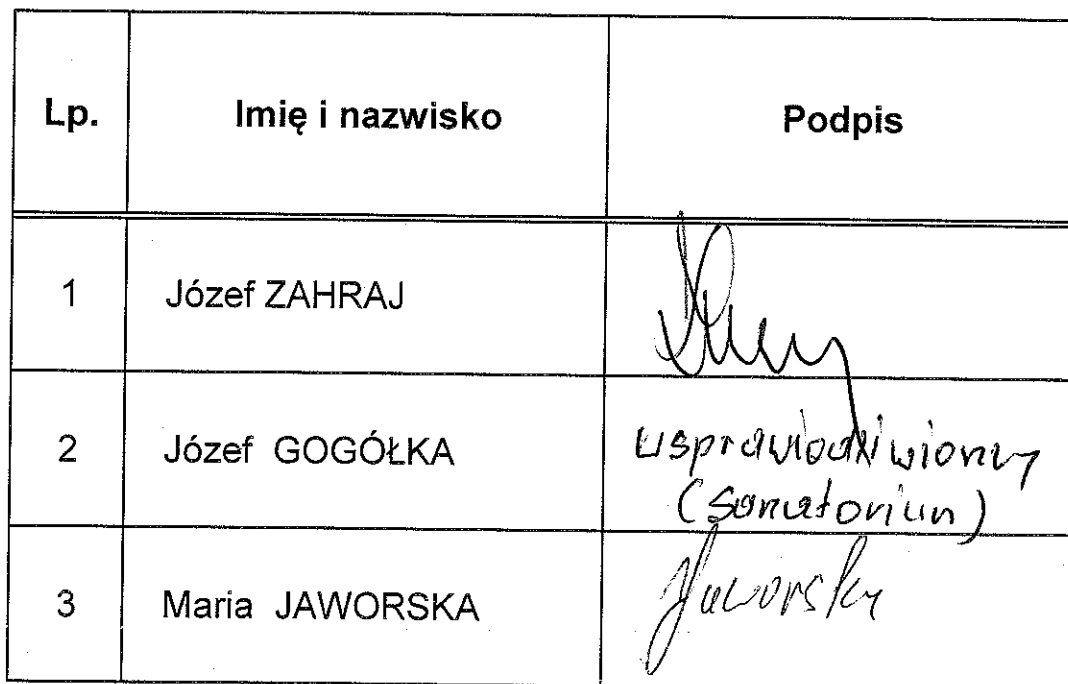 Lp. Imię i nazwisko Podpis
1 Józef ZAHRAJ
2 Józef GOGÓŁKA usprawiedliwiony
(sanatorium)
3 Maria JAWORSKA Jaworska